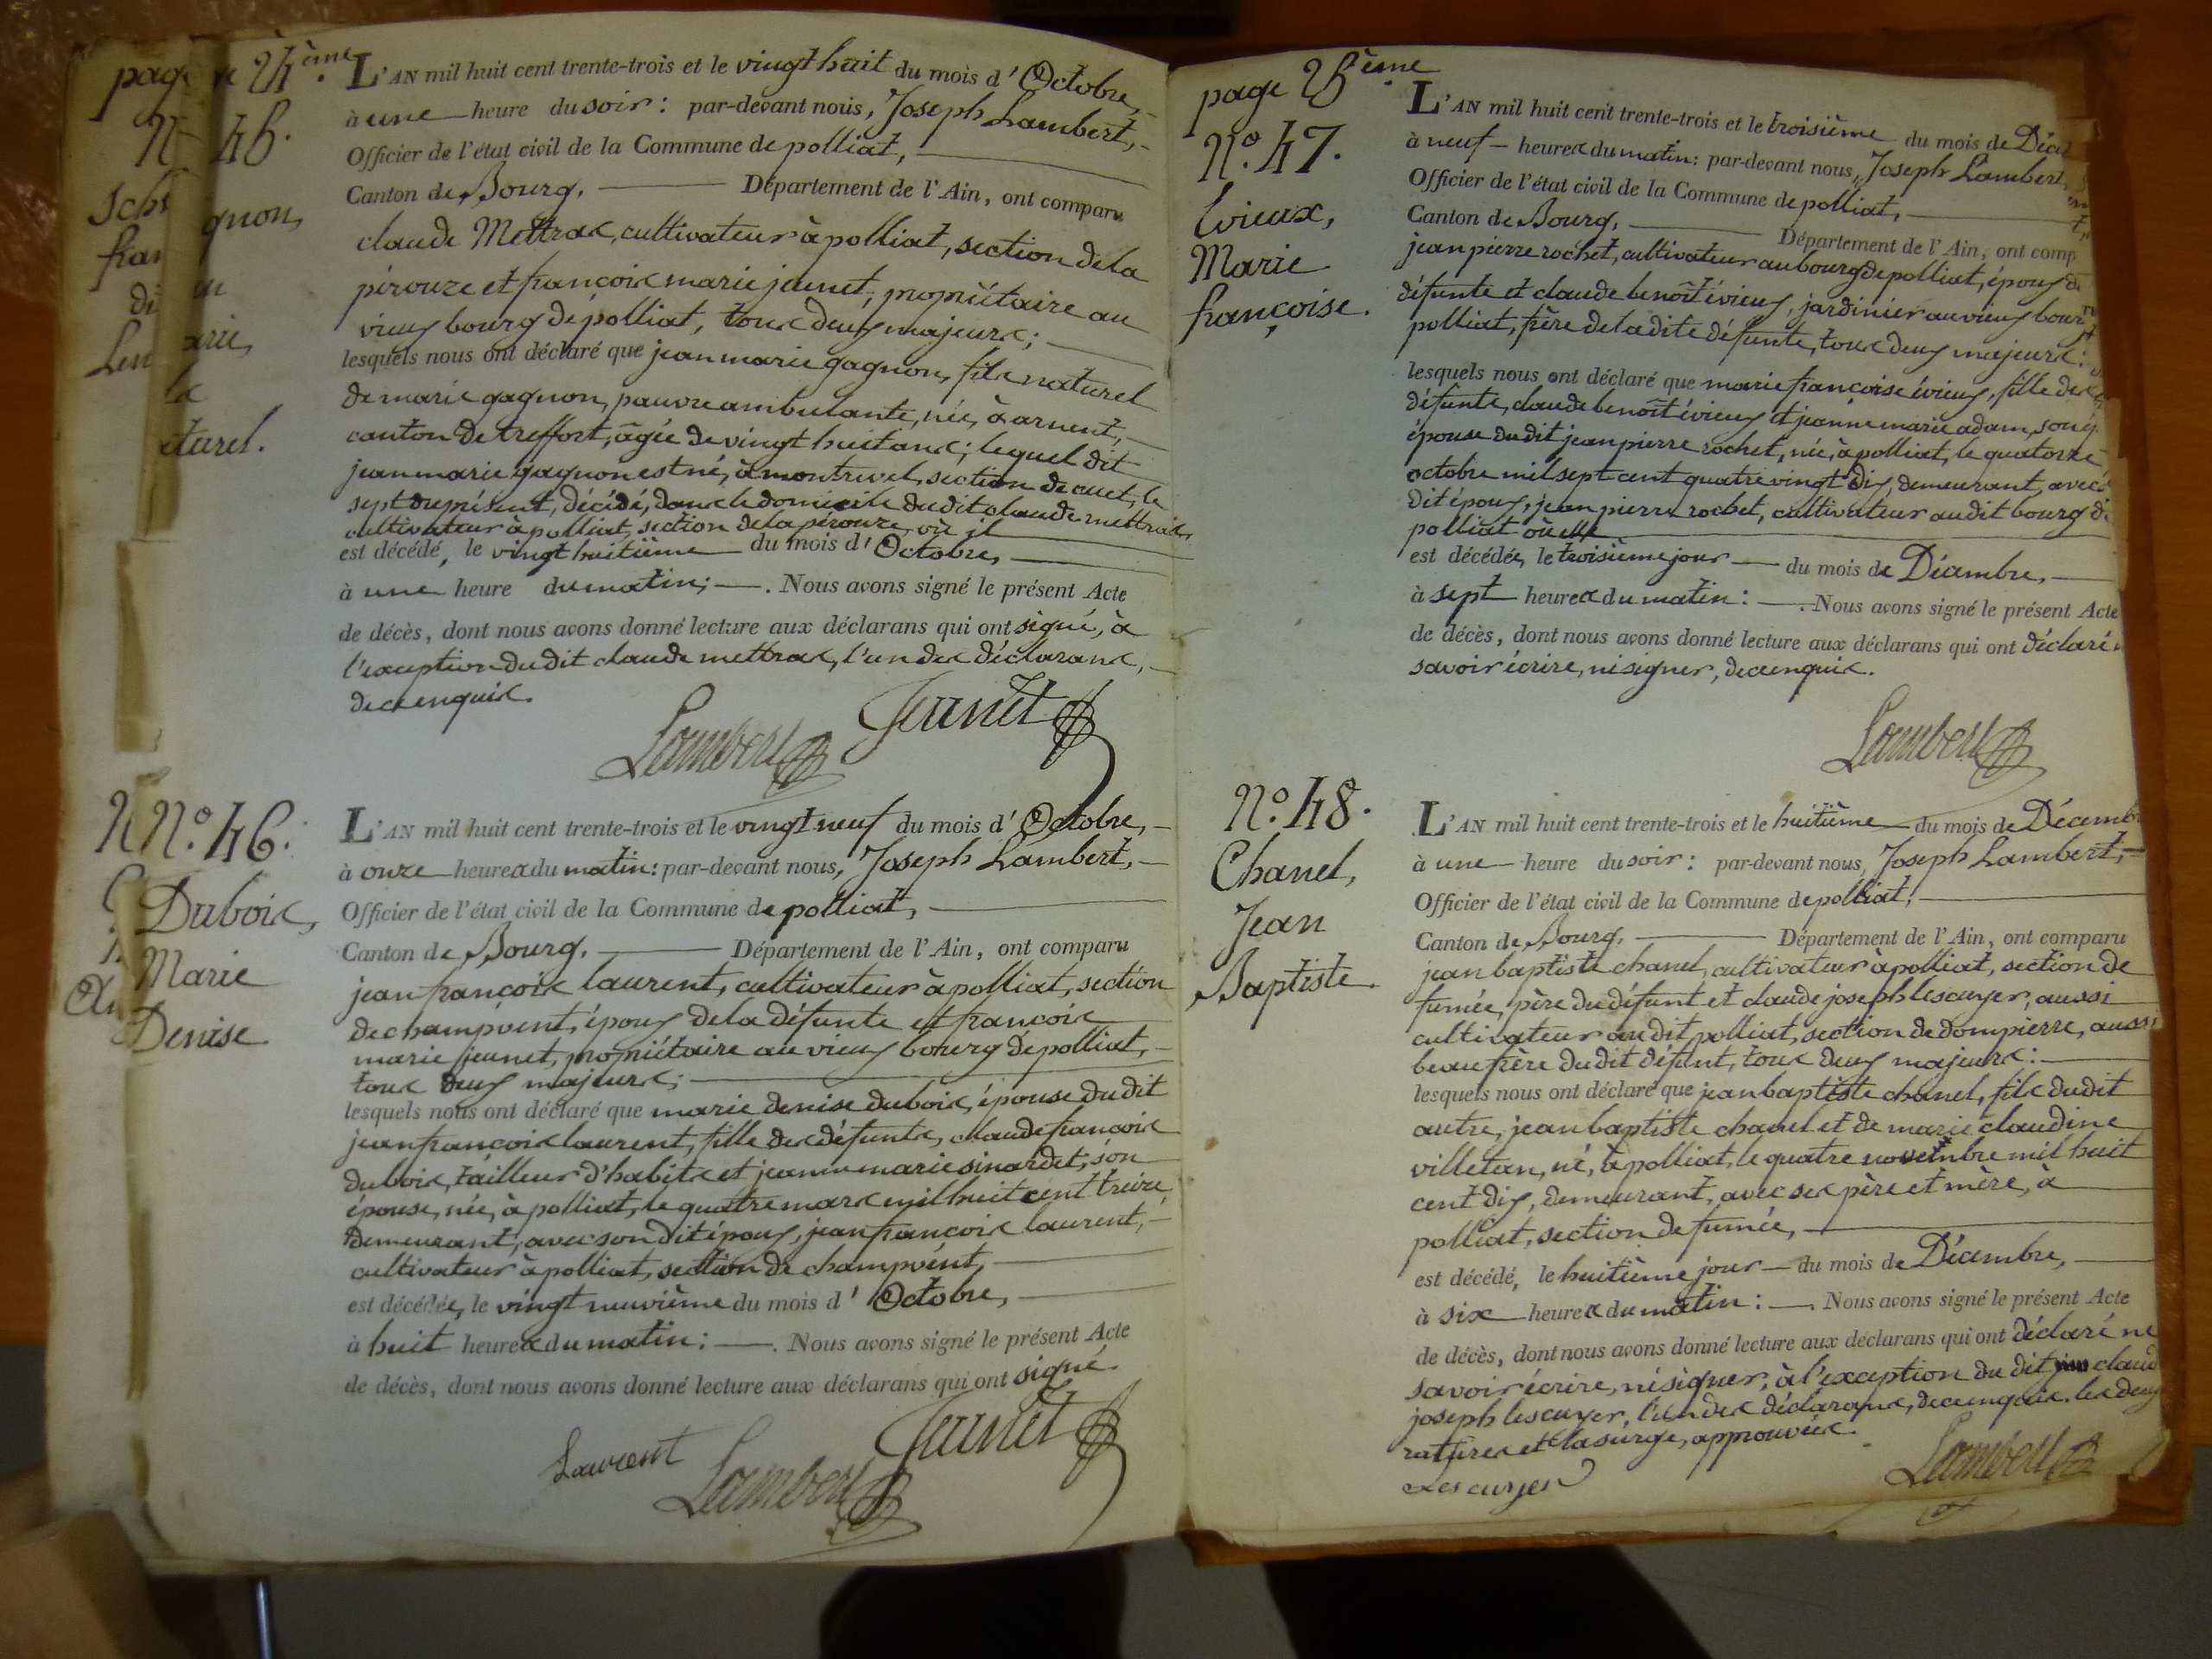 page 24ème.
N° 45.
gnon,
arie,
la
aturel.
L'AN mil huit cent trente-trois et le vingt huit du mois d'Octobre,
à une heure du soir : par-devant nous, Joseph Lambert,
Officier de l'état civil de la Commune de polliat,
Canton de Bourg, Département de l'Ain, ont comparu
claude Mettras, cultivateur à polliat, section de la
pérouze et françois marie jeunet, propriétaire au
vieux bourg de polliat, tous deux majeurs;
lesquels nous ont déclaré que jean marie gagnon, fils naturel
de marie gagnon, pauvre ambulante, née, à arnent,
canton de treffort, âgée de vingt huit ans; lequel dit
jean marie gagnon est né, à montrevel, section de cuet, le
sept du présent, décédé, dans le domicile du dit claude mettras,
cultivateur à polliat, section de la pérouze, où il
est décédé, le vingt huitième du mois d'Octobre,
à une heure du matin; . Nous avons signé le présent Acte
de décès, dont nous avons donné lecture aux déclarans qui ont signé, à
l'exception du dit claude mettras, l'un des déclarans,
de ce enquis.
Lambert Jeunet
N° 46.
Dubois,
Marie
Denise.
L'AN mil huit cent trente-trois et le vingt neuf du mois d'Octobre,
à onze heures du matin : par-devant nous, Joseph Lambert,
Officier de l'état civil de la Commune de polliat,
Canton de Bourg, Département de l'Ain, ont comparu
jean françois laurent, cultivateur à polliat, section
de champvent, époux de la défunte et françois
marie jeunet, propriétaire au vieux bourg de polliat,
tous deux majeurs;
lesquels nous ont déclaré que marie denise dubois, épouse du dit
jean françois laurent, fille des défunts, claude françois
dubois, tailleur d'habits et jeanne marie sinardet, son
épouse, née, à polliat, le quatre mars mil huit cent treize,
demeurant, avec son dit époux, jean françois laurent,
cultivateur à polliat, section de champvent,
est décédée, le vingt neuvième du mois d'Octobre,
à huit heures du matin : . Nous avons signé le présent Acte
de décès, dont nous avons donné lecture aux déclarans qui ont signé.
Laurent Lambert Jeunet
page 25ème.
N° 47.
Évieux,
Marie
françoise.
L'AN mil huit cent trente-trois et le troisième du mois de Déce
à neuf heures du matin : par-devant nous, Joseph Lambert,
Officier de l'état civil de la Commune de polliat,
Canton de Bourg, Département de l'Ain, ont comp
jean pierre rochet, cultivateur au bourg de polliat, époux de
défunte et claude benoît évieux, jardinier au vieux bour
polliat, frère de la dite défunte, tous deux majeurs :
lesquels nous ont déclaré que marie françoise évieux, fille des
défunts, claude benoît évieux et jeanne marie adam, son é
épouse du dit jean pierre rochet, née, à polliat, le quatorze
octobre mil sept cent quatre vingt dix, demeurant, avec
dit époux, jean pierre rochet, cultivateur au dit bourg de
polliat où elle
est décédée, le troisième jour du mois de Décembre,
à sept heures du matin : . Nous avons signé le présent Acte
de décès, dont nous avons donné lecture aux déclarans qui ont déclaré
savoir écrire, ni signer, de ce enquis.
Lambert
N° 48.
Chanel,
Jean
Baptiste.
L'AN mil huit cent trente-trois et le huitième du mois de Décemb
à une heure du soir : par-devant nous, Joseph Lambert,
Officier de l'état civil de la Commune de polliat,
Canton de Bourg, Département de l'Ain, ont comparu
jean baptiste chanel, cultivateur à polliat, section de
fumée, père du défunt et claude joseph lescuyer, aussi
cultivateur au dit polliat, section de dompierre, aussi
beau frère du dit défunt, tous deux majeurs :
lesquels nous ont déclaré que jean baptiste chanel, fils du dit
autre, jean baptiste chanel et de marie claudine
villetan, né, à polliat, le quatre novembre mil huit
cent dix, demeurant, avec ses père et mère, à
polliat, section de fumée,
est décédé, le huitième jour du mois de Décembre,
à six heures du matin : . Nous avons signé le présent Acte
de décès, dont nous avons donné lecture aux déclarans qui ont déclaré ne
savoir écrire, ni signer, à l'exception du dit claud
joseph lescuyer, l'un des déclarans, de ce enquis. les deux
ratures et la surge, approuvées.
Lescuyer Lambert